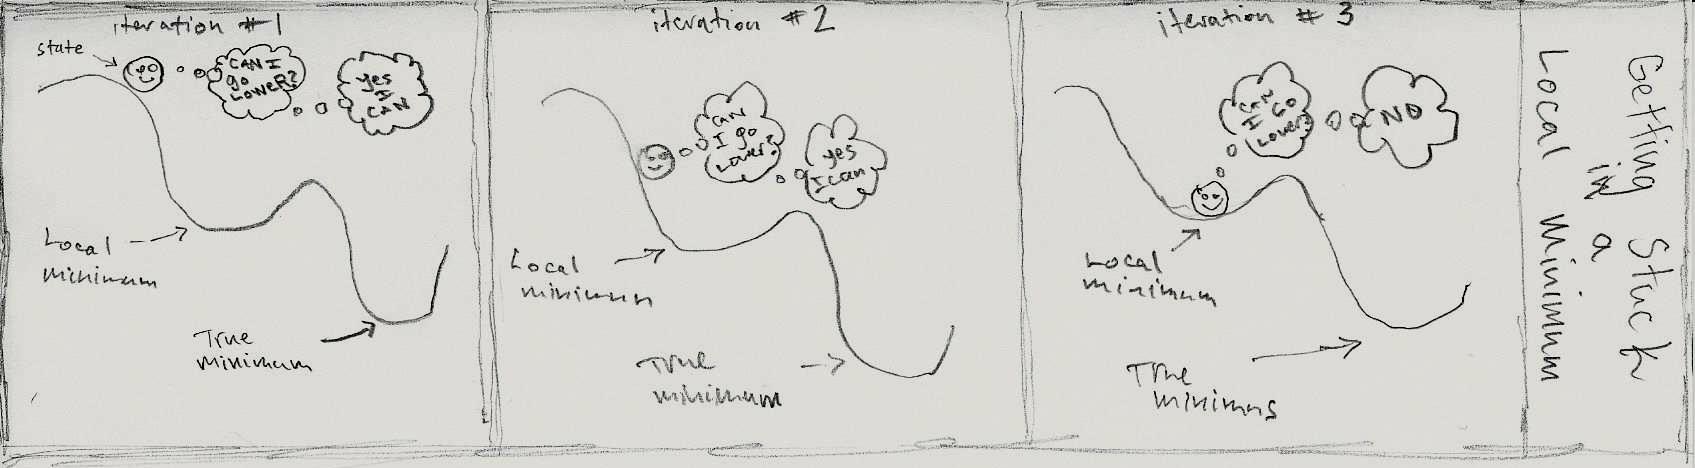 iteration #1
state
CAN I
go
LOWER?
yes
I
CAN
Local
minimum
True
minimum
iteration #2
CAN
I go
Lower?
yes
I can
Local
minimum
True
minimum
iteration # 3
CAN
I GO
Lower?
NO
Local
minimum
True
minimus
Getting Stuck
in a
Local Minimum